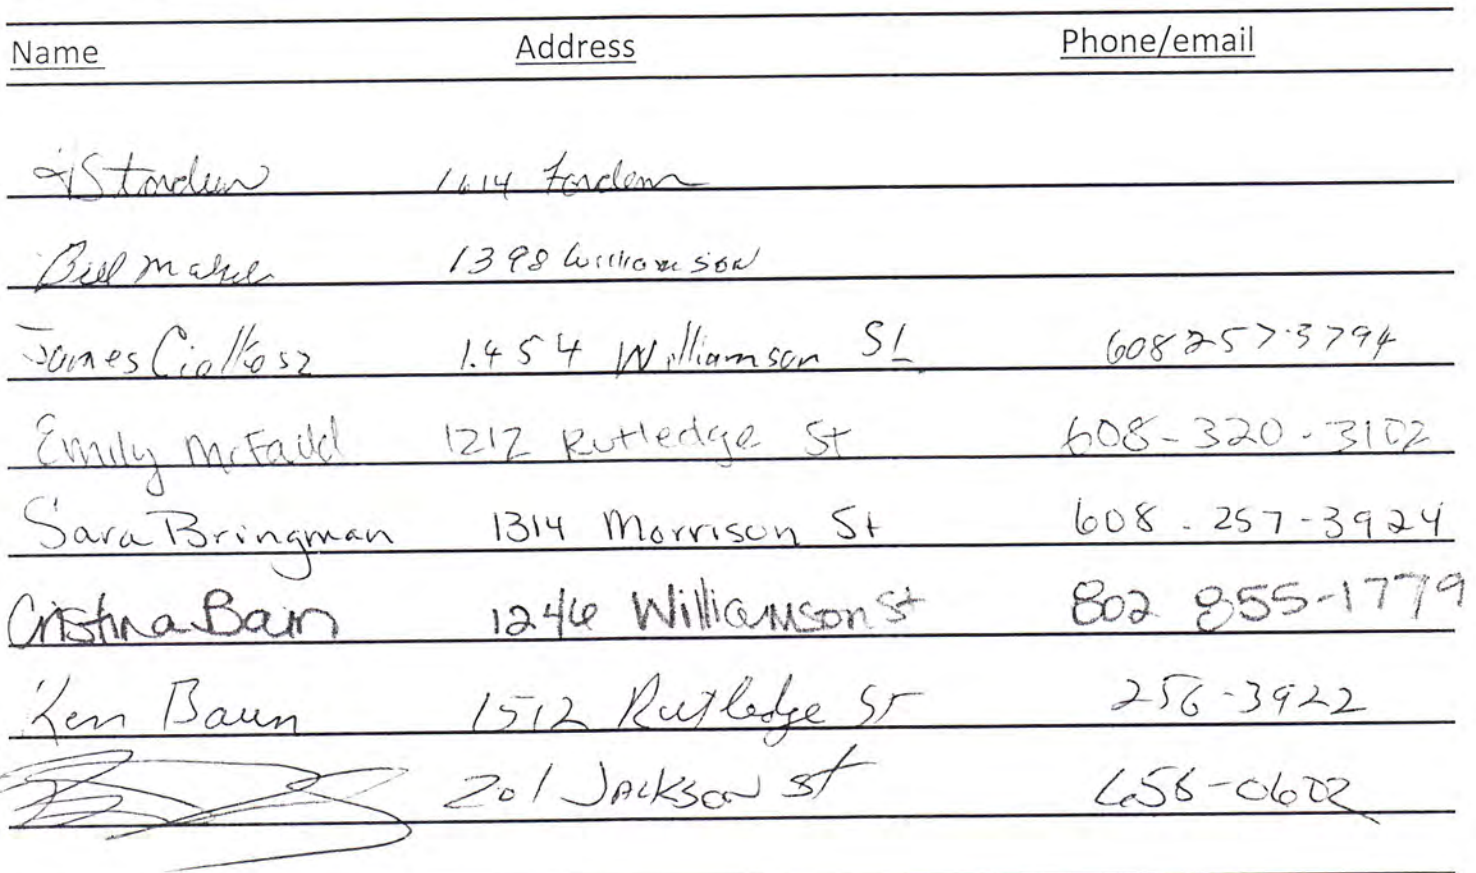 Name Address Phone/email
1614 Fordem
Bill 1398 Williamson
James Ciolkosz 1454 Williamson St 608 257-3794
Emily McFadd 1212 Rutledge St 608-320-3102
Sara Bringman 1314 Morrison St 608-257-3924
Cristina Bain 1246 Williamson St 802 855-1779
Ken Baun 1512 Rutledge St 256-3922
201 Jackson St